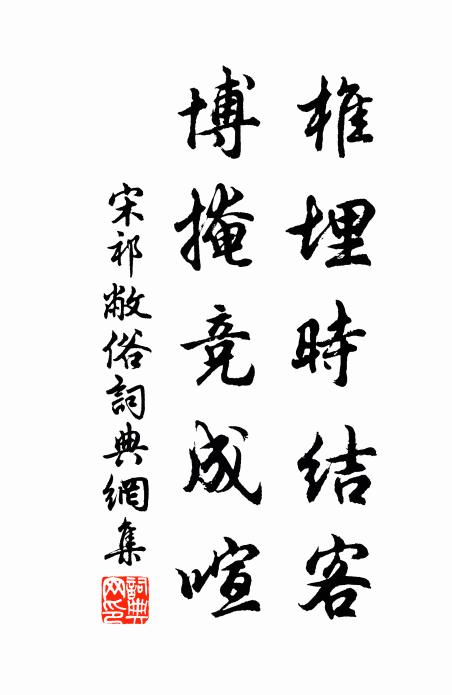 椎埋時結客
博掩竞成喧
宋祁敝俗詞典網集
詞典网印